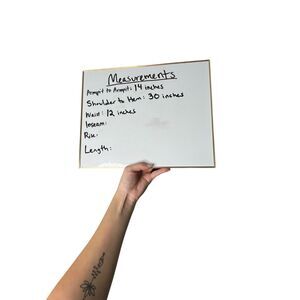 Measurements
Armpit to Armpit: 14 inches
Shoulder to Hem: 30 inches
Waist: 12 inches
Inseam:
Rise:
Length: